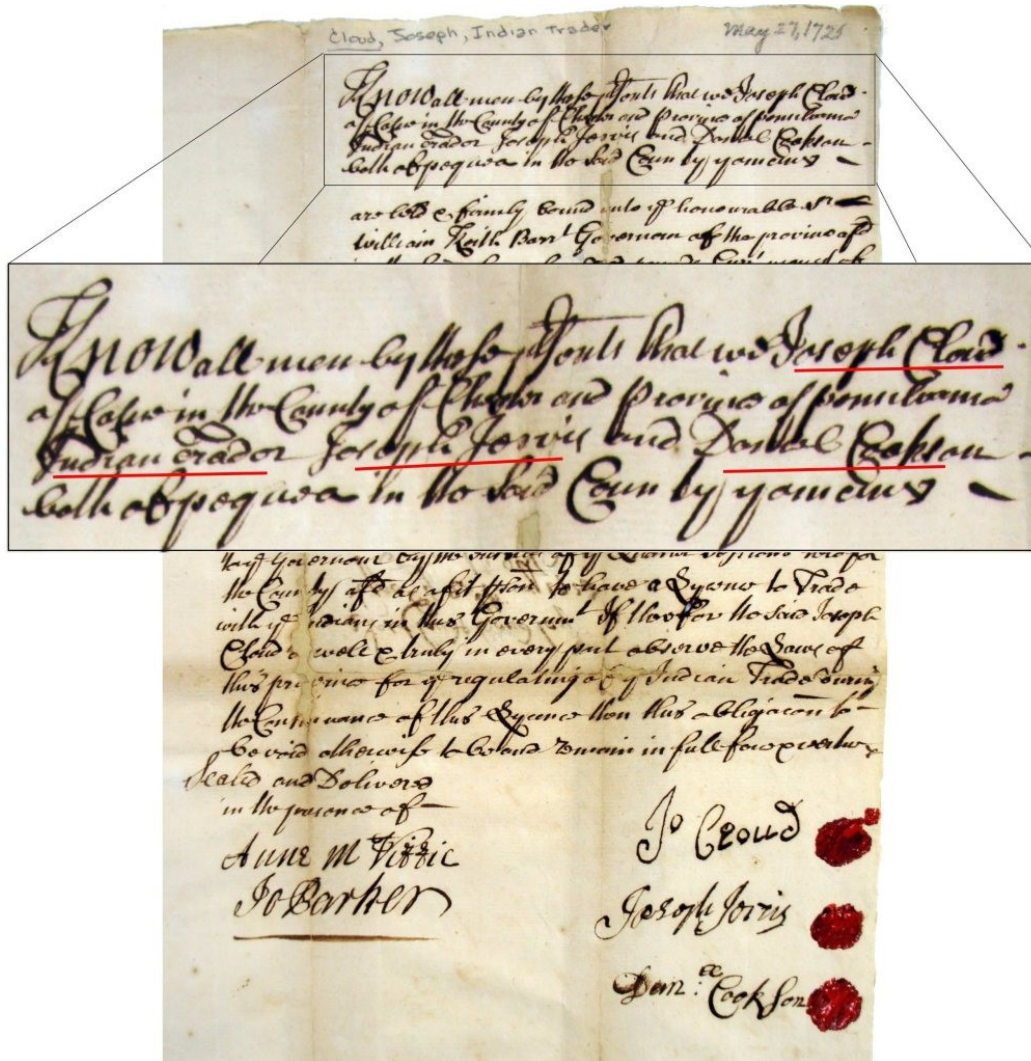 Cloud, Joseph, Indian Trader
May 27, 1725
Know all men by these psents that we Joseph Cloud
of in the County of Chester and Province of
Indian Trador Joseph Jervis and Daniel Cookson
both of pequea in the said County yomen
are held & firmly bound unto ye honourable Sr
William Keith Barrt Governour of the province afd
Know all men by these psents that we Joseph Cloud
of in the County of Chester and Province of
Indian Trador Joseph Jervis and Daniel Cookson
both of pequea in the said County yomen
Governour by the of ye Quarter Sessions
the County afd as a fit pson to have a Lycence to Trade
with ye Indians in this Governmt If therfor the said Joseph
Cloud well & truly in every part observe the Laws of
this province for ye regulating of ye Indian Trade during
the Continuance of this Lycence then this obligacon to
be void otherwise to be and remain in full force & vertue
Sealed and Delivered
in the presence of
Anne M
Jo Barker
Jo Cloud
Joseph Jervis
Danel: Cookson